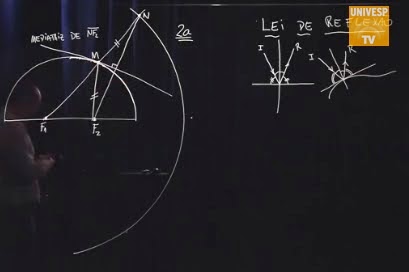 N
2a
MEDIATRIZ DE NF₂
M
F₁
F₂
LEI DE REFLEXÃO
I
R
I
R
UNIVESP
TV